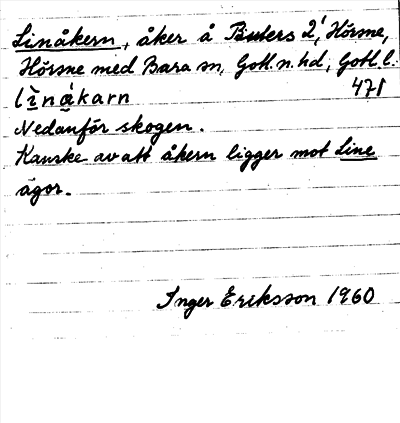 Linåkern, åker å Buters 2¹, Hörsne,
Hörsne med Bara sn, Gotl. n. hd, Gotl. l.
lìnákarn 471
Nedanför skogen.
Kanske av att åkern ligger mot Line
ägor.
Inger Eriksson 1960